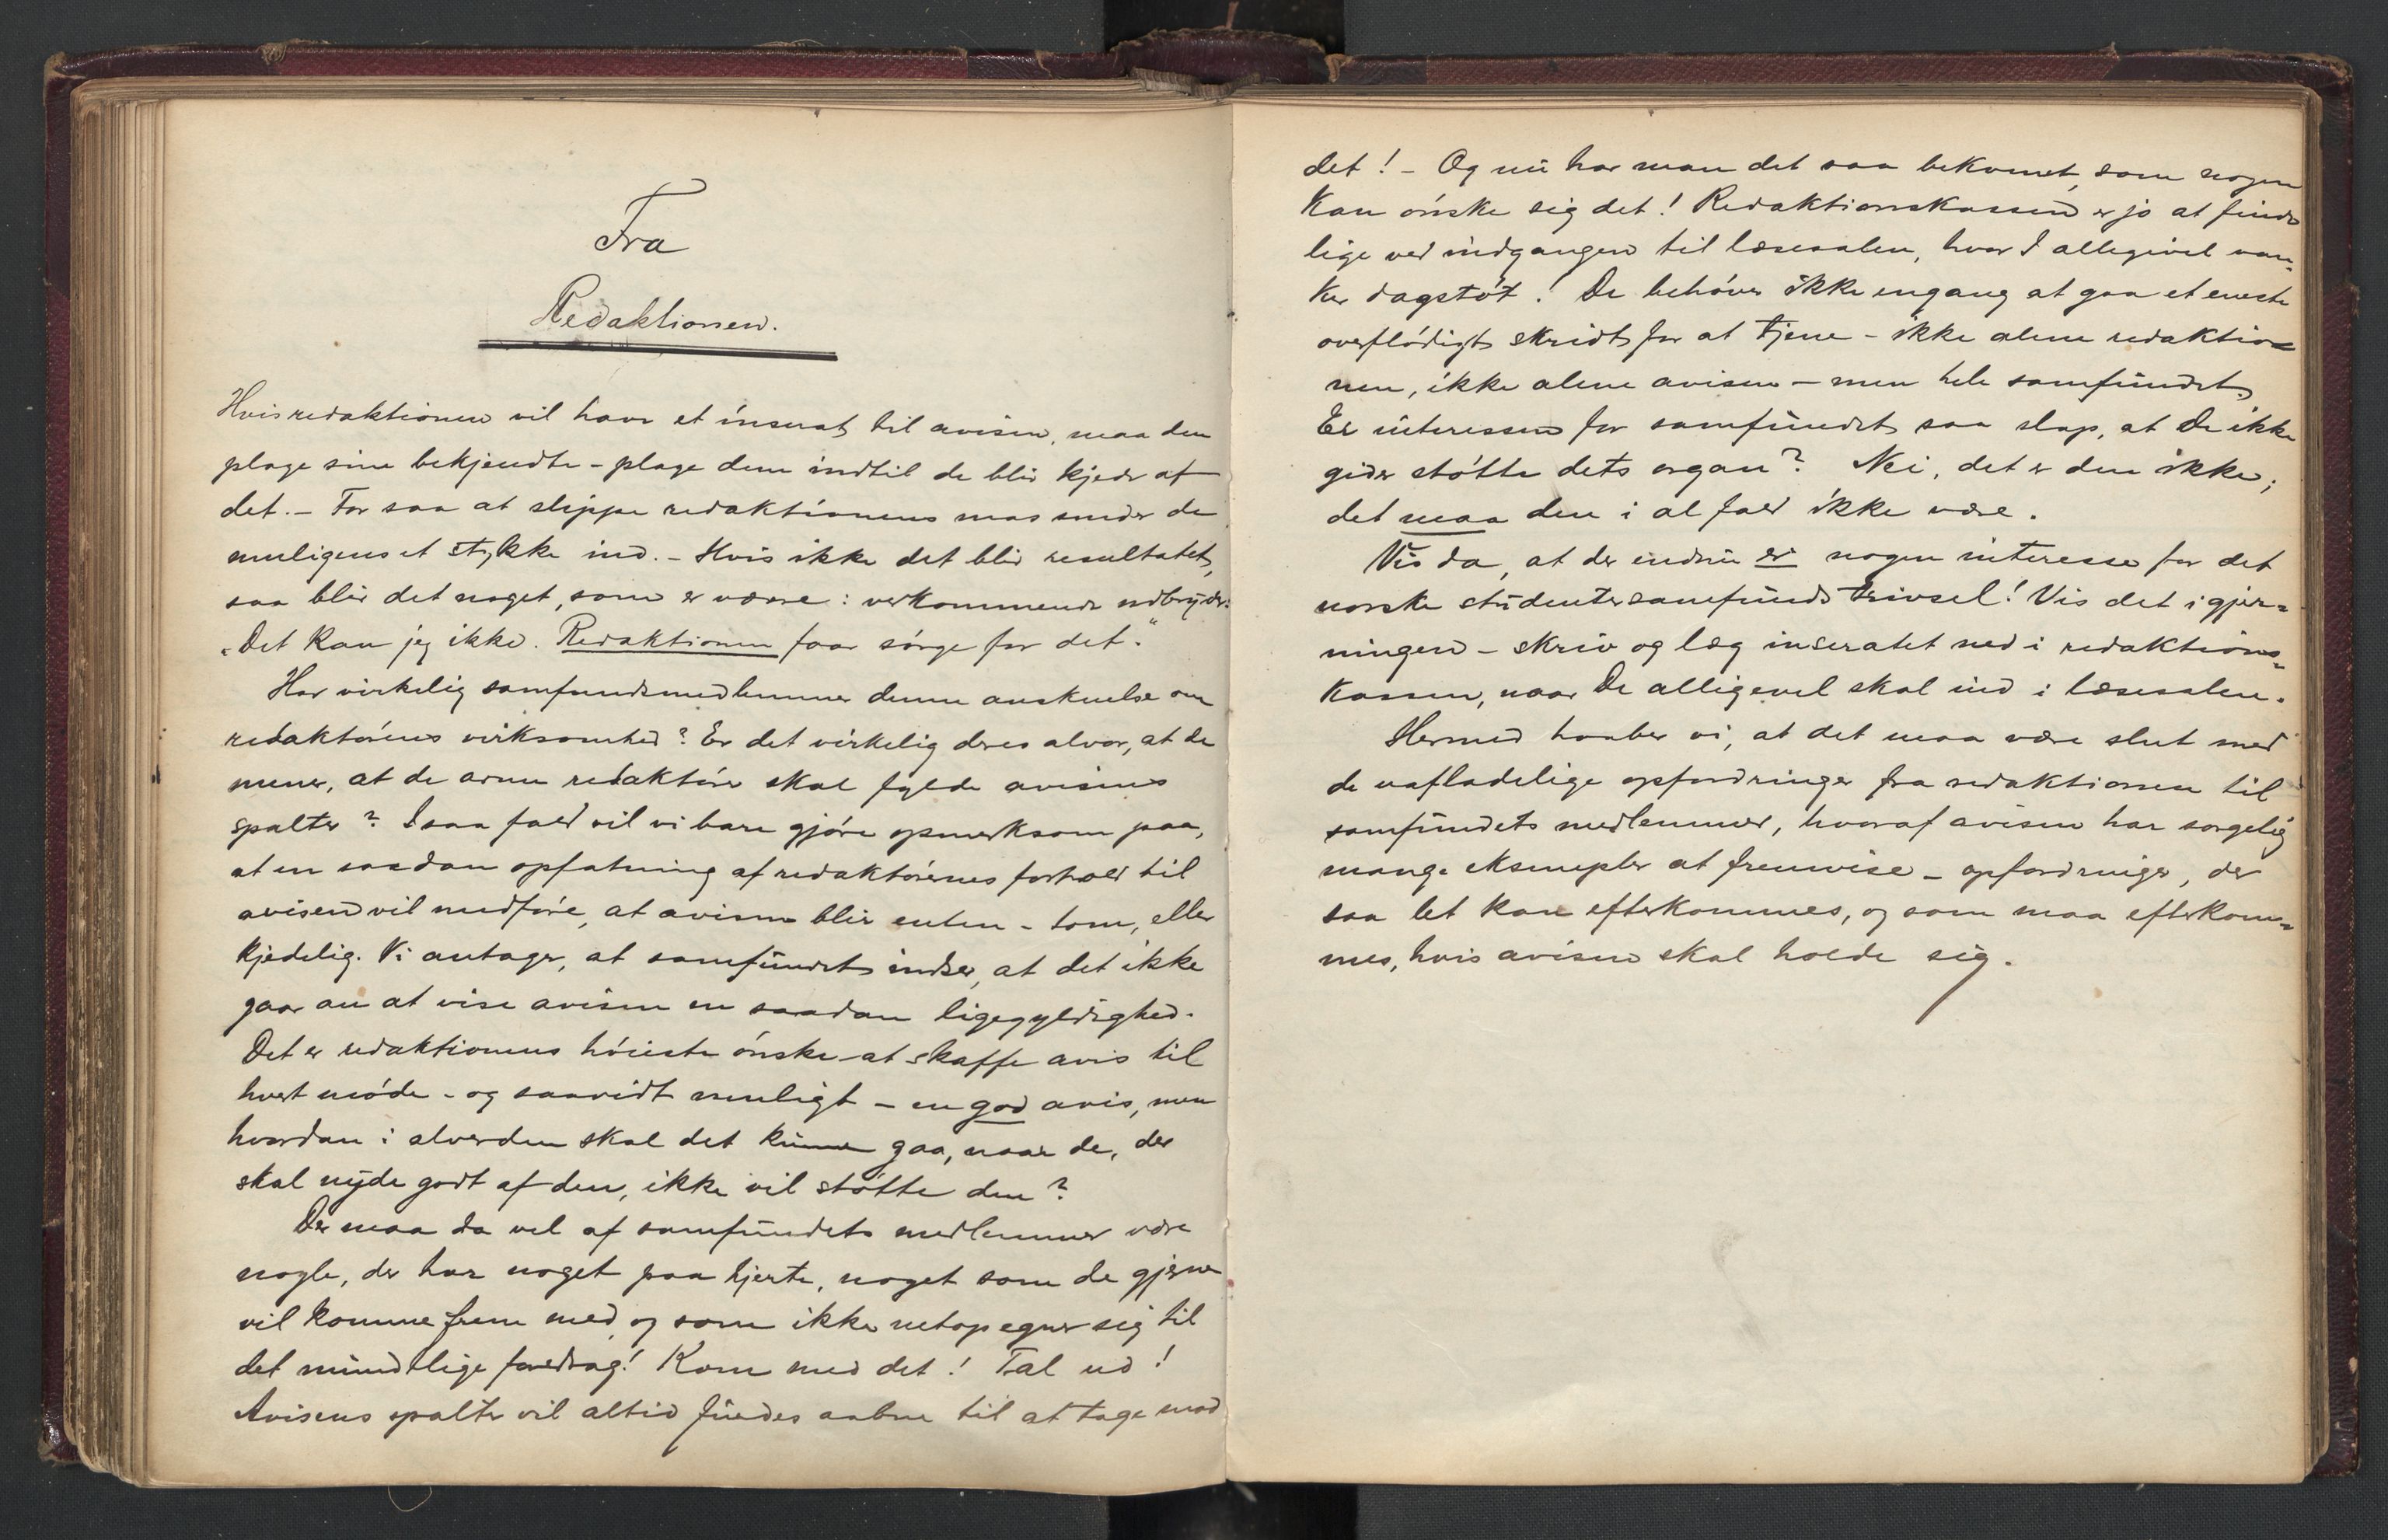 Fra
Redaktionen.
Hvis redaktionen vil have et inserat til avisen, maa den
plage sine bekjendte - plage dem indtil de blir kjede af
det. - For saa at slippe redaktionens mas sender de
muligens et stykke ind. - Hvis ikke det blir resultatet,
saa blir det noget, som er værre: vedkommende udbryder:
„Det kan jeg ikke. Redaktionen faar sørge for det.“
Har virkelig samfundsmedlemmer denne anskuelse om
redaktørens virksomhed? Er det virkelig deres alvor, at de
mener, at de arme redaktører skal fylde avisens
spalter? I saa fald vil vi bare gjøre opmerksom paa,
at en saadan opfatning af redaktørenes forhold til
avisen vil medføre, at avisen blir enten - tom, eller
kjedelig. Vi antager, at samfundet indser, at det ikke
gaar an at vise avisen en saadan ligegyldighed.
Det er redaktionens høieste ønske at skaffe avis til
hvert møde - og saavidt muligt - en god avis, men
hvordan i alverden skal det kunne gaa, naar de, der
skal nyde godt af den, ikke vil støtte den?
Der maa da vel af samfundets medlemmer være
nogle, der har noget paa hjerte, noget som de gjerne
vil komme frem med, og som ikke netop egner sig til
det mundtlige foredrag! Kom med det! Tal ud!
Avisens spalter vil altid findes aabne til at tage mod
det! - Og nu har man det saa bekvemt, som nogen
kan ønske sig det! Redaktionskassen er jo at finde
lige ved indgangen til læsesalen, hvor I alligevel van-
ker dagstøt! De behøver ikke engang at gaa et eneste
overflødigt skridt for at tjene - ikke alene redaktio-
nen, ikke alene avisen - men hele samfundet.
Er interessen for samfundet saa slap, at De ikke
gider støtte dets organ? Nei, det er den ikke;
det maa den i al fald ikke være.
Vis da, at der endnu er nogen interesse for det
norske studentersamfunds trivsel! Vis det i gjer-
ningen - skriv og læg inseratet ned i redaktions-
kassen, naar De alligevel skal ind i læsesalen.
Hermed haaber vi, at det maa være slut med
de uafladelige opfordringer fra redaktionen til
samfundets medlemmer, hvoraf avisen har sørgelig
mange eksempler at fremvise - opfordringer, der
saa let kan efterkommes, og som maa efterkom-
mes, hvis avisen skal holde sig.